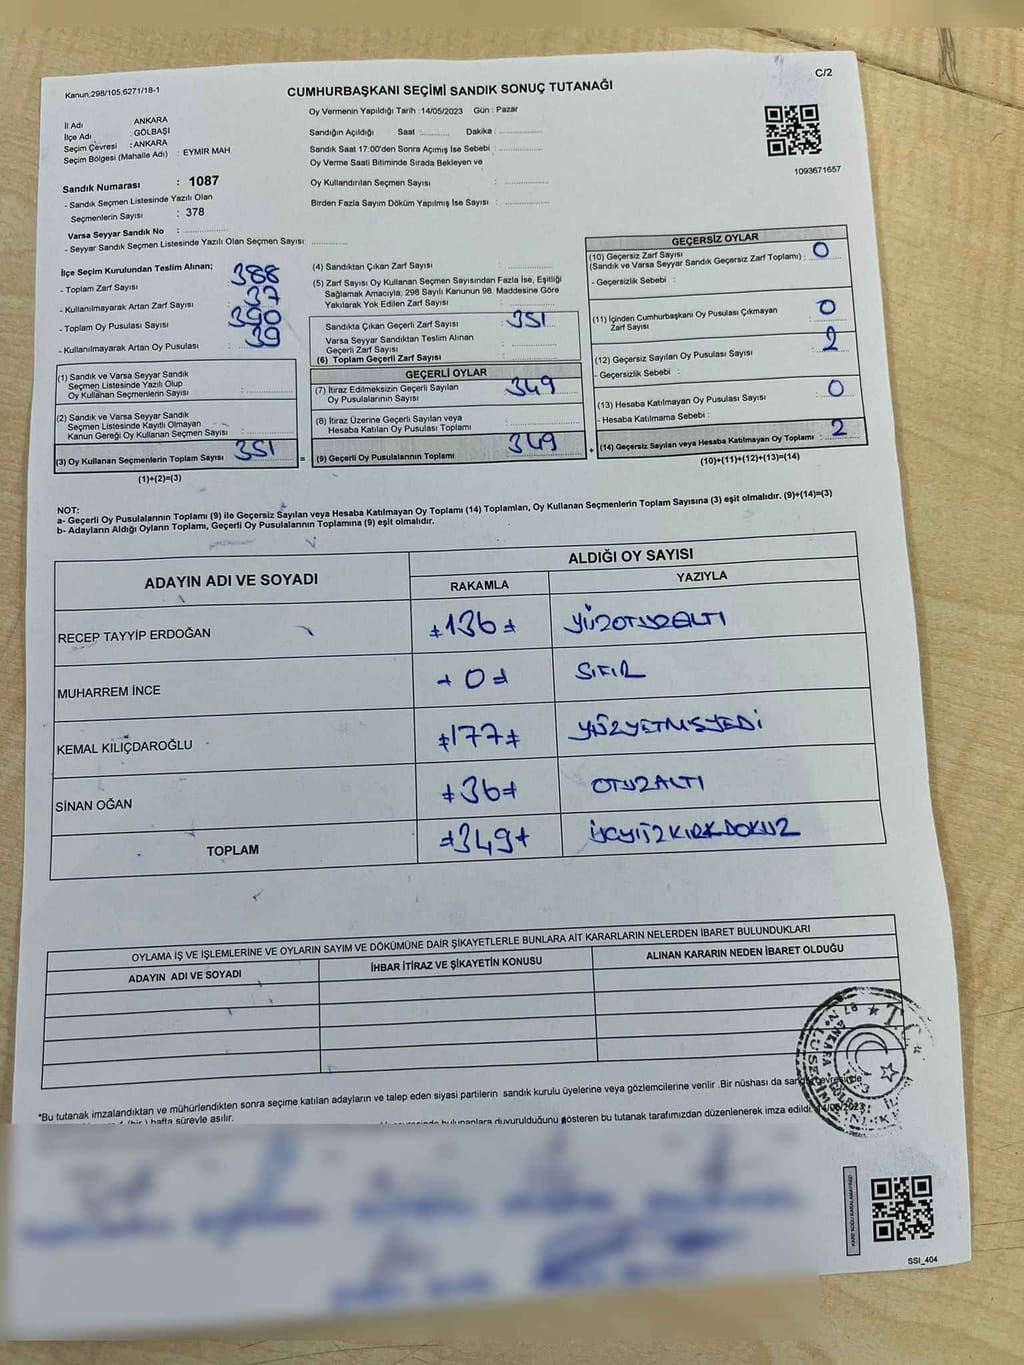 Kanun:298/105,6271/18-1
C/2
CUMHURBAŞKANI SEÇİMİ SANDIK SONUÇ TUTANAĞI
İl Adı : ANKARA
İlçe Adı : GÖLBAŞI
Seçim Çevresi : ANKARA
Seçim Bölgesi (Mahalle Adı) : EYMİR MAH.
Sandık Numarası : 1087
- Sandık Seçmen Listesinde Yazılı Olan
Seçmenlerin Sayısı : 378
Varsa Seyyar Sandık No :
- Seyyar Sandık Seçmen Listesinde Yazılı Olan Seçmen Sayısı:
Oy Vermenin Yapıldığı Tarih : 14/05/2023 Gün : Pazar
Sandığın Açıldığı Saat : Dakika :
Sandık Saat 17:00'den Sonra Açımış İse Sebebi :
Oy Verme Saati Bitiminde Sırada Bekleyen ve
Oy Kullandırılan Seçmen Sayısı :
Birden Fazla Sayım Döküm Yapılmış İse Sayısı :
1093671657
İlçe Seçim Kurulundan Teslim Alınan;
- Toplam Zarf Sayısı : 388
- Kullanılmayarak Artan Zarf Sayısı : 37
- Toplam Oy Pusulası Sayısı : 390
- Kullanılmayarak Artan Oy Pusulası : 39
(1) Sandık ve Varsa Seyyar Sandık
Seçmen Listesinde Yazılı Olup
Oy Kullanan Seçmenlerin Sayısı :
(2) Sandık ve Varsa Seyyar Sandık
Seçmen Listesinde Kayıtlı Olmayan
Kanun Gereği Oy Kullanan Seçmen Sayısı :
(3) Oy Kullanan Seçmenlerin Toplam Sayısı 351
(1)+(2)=(3)
=
(4) Sandıktan Çıkan Zarf Sayısı :
(5) Zarf Sayısı Oy Kullanan Seçmen Sayısından Fazla İse, Eşitliği
Sağlamak Amacıyla, 298 Sayılı Kanunun 98. Maddesine Göre
Yakılarak Yok Edilen Zarf Sayısı :
Sandıkta Çıkan Geçerli Zarf Sayısı : 351
Varsa Seyyar Sandıktan Teslim Alınan
Geçerli Zarf Sayısı :
(6) Toplam Geçerli Zarf Sayısı :
GEÇERLİ OYLAR
(7) İtiraz Edilmeksizin Geçerli Sayılan
Oy Pusulalarının Sayısı : 349
(8) İtiraz Üzerine Geçerli Sayılan veya
Hesaba Katılan Oy Pusulası Toplamı :
(9) Geçerli Oy Pusulalarının Toplamı : 349
+
GEÇERSİZ OYLAR
(10) Geçersiz Zarf Sayısı
(Sandık ve Varsa Seyyar Sandık Geçersiz Zarf Toplamı) : 0
- Geçersizlik Sebebi :
(11) İçinden Cumhurbaşkanı Oy Pusulası Çıkmayan
Zarf Sayısı : 0
(12) Geçersiz Sayılan Oy Pusulası Sayısı : 2
- Geçersizlik Sebebi :
(13) Hesaba Katılmayan Oy Pusulası Sayısı : 0
- Hesaba Katılmama Sebebi :
(14) Geçersiz Sayılan veya Hesaba Katılmayan Oy Toplamı : 2
(10)+(11)+(12)+(13)=(14)
NOT:
a- Geçerli Oy Pusulalarının Toplamı (9) ile Geçersiz Sayılan veya Hesaba Katılmayan Oy Toplamı (14) Toplamları, Oy Kullanan Seçmenlerin Toplam Sayısına (3) eşit olmalıdır. (9)+(14)=(3)
b- Adayların Aldığı Oyların Toplamı, Geçerli Oy Pusulalarının Toplamına (9) eşit olmalıdır.
ADAYIN ADI VE SOYADI
ALDIĞI OY SAYISI
RAKAMLA YAZIYLA
RECEP TAYYİP ERDOĞAN 136 YÜZOTUZALTI
MUHARREM İNCE 0 SIFIR
KEMAL KILIÇDAROĞLU 177 YÜZYETMİŞYEDİ
SİNAN OĞAN 36 OTUZALTI
TOPLAM 349 ÜÇYÜZKIRKDOKUZ
OYLAMA İŞ VE İŞLEMLERİNE VE OYLARIN SAYIM VE DÖKÜMÜNE DAİR ŞİKAYETLERLE BUNLARA AİT KARARLARIN NELERDEN İBARET BULUNDUKLARI
ADAYIN ADI VE SOYADI İHBAR İTİRAZ VE ŞİKAYETİN KONUSU ALINAN KARARIN NEDEN İBARET OLDUĞU
*Bu tutanak imzalandıktan ve mühürlendikten sonra seçime katılan adayların ve talep eden siyasi partilerin sandık kurulu üyelerine veya gözlemcilerine verilir .Bir nüshası da sandık çevresinde
(bir ) hafta süreyle asılır.
bulunanlara duyurulduğunu gösteren bu tutanak tarafımızdan düzenlenerek imza edildi. 14/05/2023
T.C.
ANKARA
SSI_404